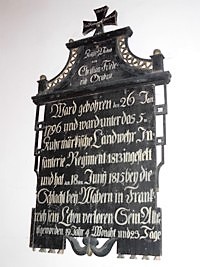 Christian Friede-
Ward gebohren den 26 Jan
1796 und ward unter das 5.
Kuhrmärkische Landwehr In-
fanterie Regiment 1813 eingestelt
und hat am 18ten Junij 1815 bey die
Schlacht bey Wabern in Frank-
reich sein Leben verloren Sein Alter
ist geworden 19 Jahr 4 Monaht und 23 Tage